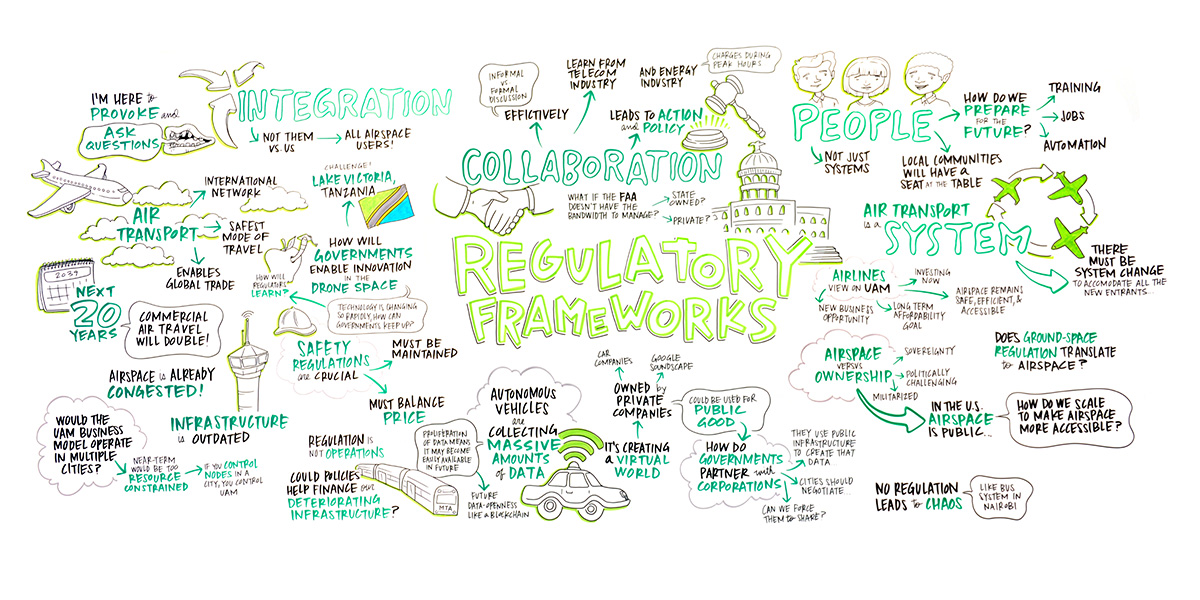 I'M HERE to
PROVOKE and
ASK
QUESTIONS
INTEGRATION
NOT THEM
VS. US
ALL AIRSPACE
USERS!
AIR
TRANSPORT
INTERNATIONAL
NETWORK
SAFEST
MODE OF
TRAVEL
ENABLES
GLOBAL TRADE
CHALLENGE!
LAKE VICTORIA,
TANZANIA
HOW WILL
GOVERNMENTS
ENABLE INNOVATION
IN the
DRONE SPACE
HOW WILL
REGULATORS
LEARN?
TECHNOLOGY IS CHANGING
SO RAPIDLY, HOW CAN
GOVERNMENTS KEEP UP?
2039
NEXT
20
YEARS
COMMERCIAL
AIR TRAVEL
WILL DOUBLE!
AIRSPACE is ALREADY
CONGESTED!
INFRASTRUCTURE
is OUTDATED
SAFETY
REGULATIONS
are CRUCIAL
MUST BE
MAINTAINED
MUST BALANCE
PRICE
WOULD THE
UAM BUSINESS
MODEL OPERATE
IN MULTIPLE
CITIES?
NEAR-TERM
WOULD BE TOO
RESOURCE
CONSTRAINED
IF YOU CONTROL
NODES IN A
CITY, YOU CONTROL
UAM
REGULATION IS
NOT OPERATIONS
COULD POLICIES
HELP FINANCE our
DETERIORATING
INFRASTRUCTURE?
MTA
INFORMAL
VS.
FORMAL
DISCUSSION
EFFECTIVELY
LEARN FROM
TELECOM
INDUSTRY
AND ENERGY
INDUSTRY
CHARGES DURING
PEAK HOURS
LEADS to ACTION
and POLICY
COLLABORATION
WHAT IF the FAA
DOESN'T HAVE THE
BANDWIDTH TO MANAGE?
STATE
OWNED?
PRIVATE?
REGULATORY
FRAMEWORKS
AUTONOMOUS
VEHICLES
are
COLLECTING
MASSIVE
AMOUNTS
of DATA
PROLIFERATION
OF DATA MEANS
IT MAY BECOME
EASILY AVAILABLE
IN FUTURE
FUTURE
DATA-OPENNESS
LIKE a BLOCKCHAIN
CAR
COMPANIES
GOOGLE
SOUNDSCAPE
OWNED by
PRIVATE
COMPANIES
IT'S CREATING
a VIRTUAL
WORLD
COULD BE USED FOR
PUBLIC
GOOD
HOW DO
GOVERNMENTS
PARTNER with
CORPORATIONS?
THEY USE PUBLIC
INFRASTRUCTURE
TO CREATE THAT
DATA...
CITIES SHOULD
NEGOTIATE...
CAN WE FORCE
THEM to SHARE?
PEOPLE
NOT JUST
SYSTEMS
HOW DO WE
PREPARE
FOR the
FUTURE?
TRAINING
JOBS
AUTOMATION
LOCAL COMMUNITIES
WILL HAVE a
SEAT at the TABLE
AIR TRANSPORT
is a
SYSTEM
THERE
MUST BE
SYSTEM CHANGE
TO ACCOMODATE ALL THE
NEW ENTRANTS...
AIRLINES
VIEW ON UAM
INVESTING
NOW
NEW BUSINESS
OPPORTUNITY
LONG TERM
AFFORDABILITY
GOAL
AIRSPACE REMAINS
SAFE, EFFICIENT, &
ACCESSIBLE
AIRSPACE
VERSUS
OWNERSHIP
SOVEREIGNTY
POLITICALLY
CHALLENGING
MILITARIZED
DOES GROUND-SPACE
REGULATION TRANSLATE
to AIRSPACE?
IN THE U.S.
AIRSPACE
IS PUBLIC...
HOW DO WE SCALE
TO MAKE AIRSPACE
MORE ACCESSIBLE?
NO REGULATION
LEADS to CHAOS
LIKE BUS
SYSTEM IN
NAIROBI